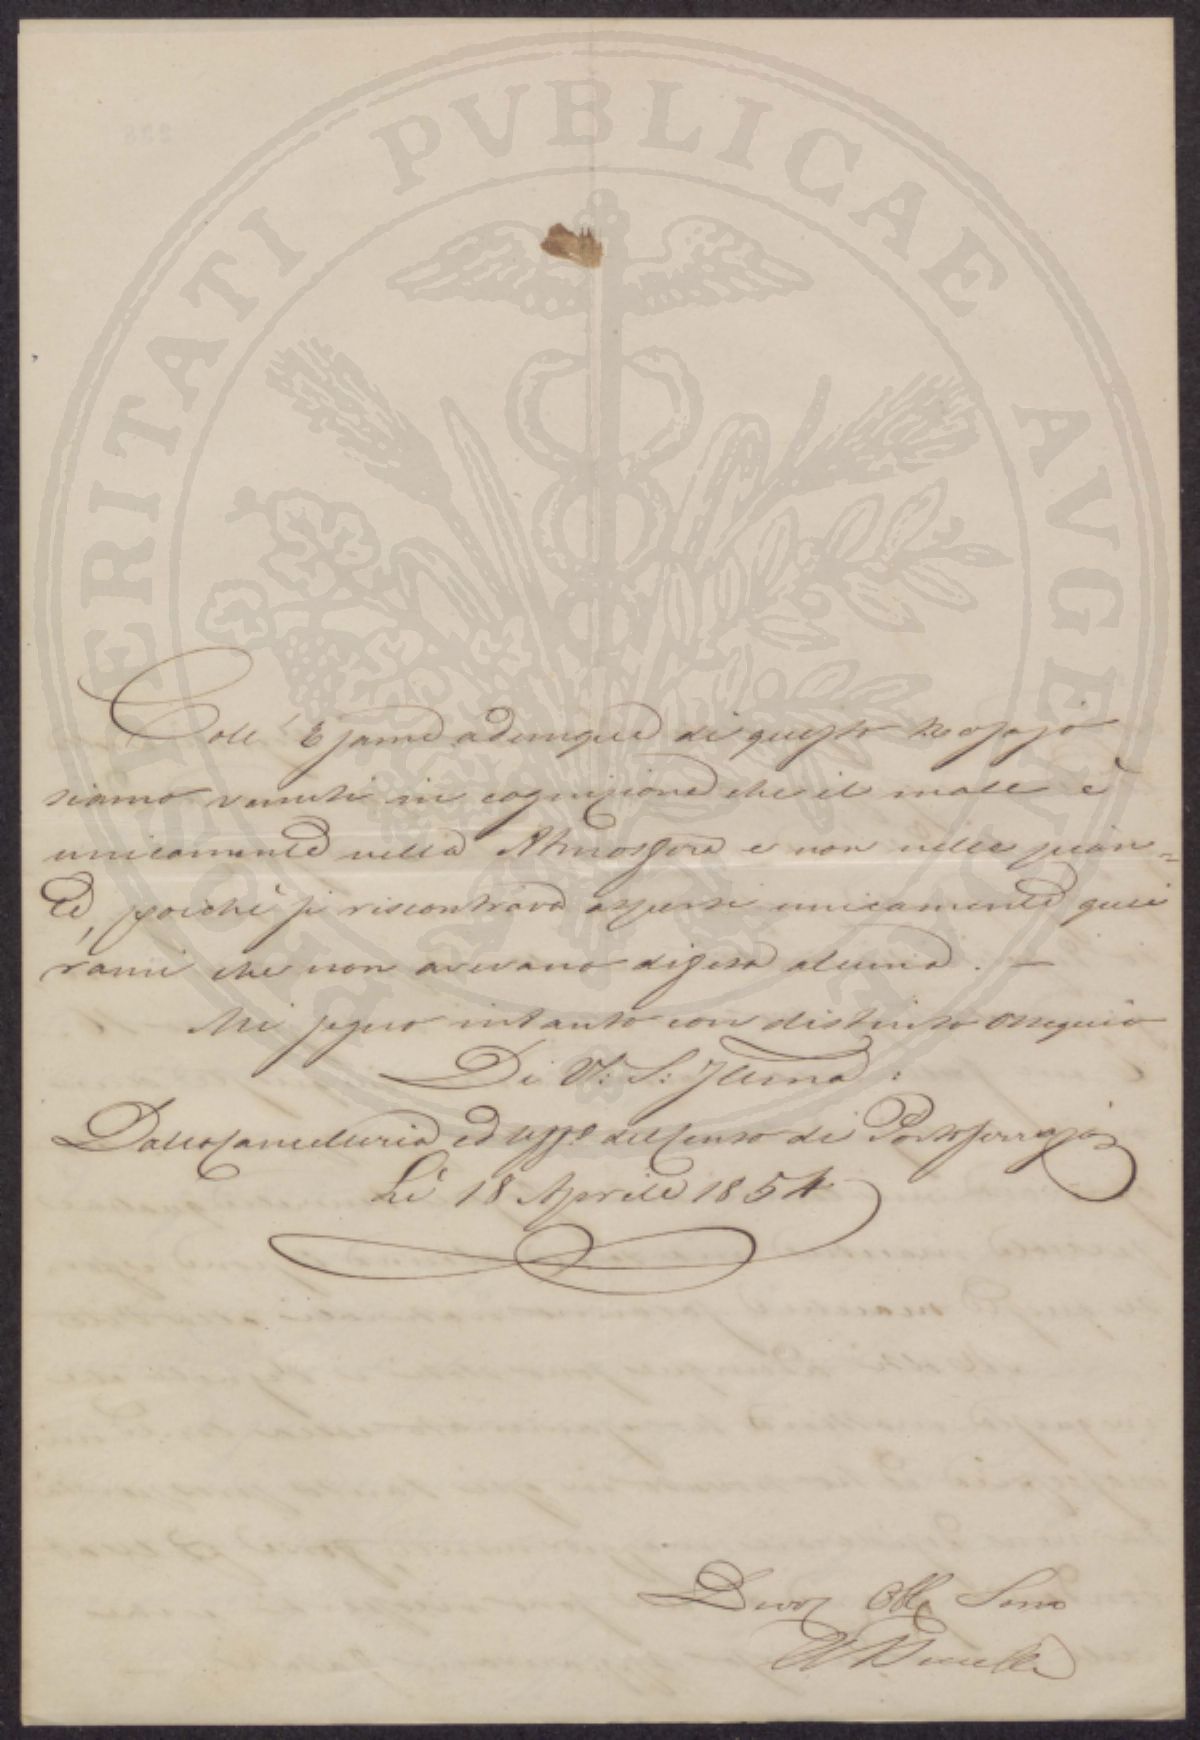 PROSPERITATI PVBLICAE AVGENDAE
Coll' Esame adunque di questo Rosajo
siamo venuti in cognizione che il male è
unicamente nella Atmosfera e non nelle pian=
te, poichè si riscontrava aspersi unicamente quei
rami che non avevano difesa alcuna. —
Mi segno intanto con distinto ossequio
Di V: S: Illma:
Dalla Cancelleria ed Uffo del Censo di Portoferrajo
Li 18 Aprile 1854
Devo Obbo Servo